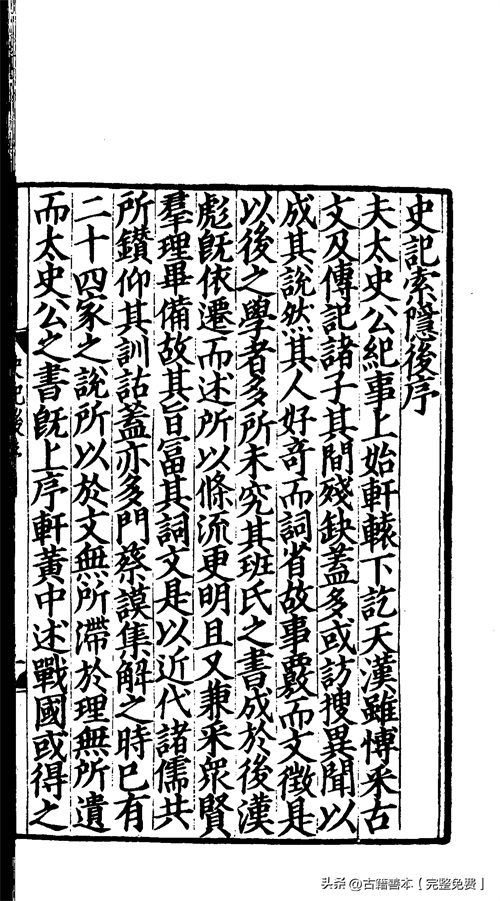 史記索隱後序
夫太史公紀事上始軒轅下訖天漢雖博采古
文及傳記諸子其間殘缺蓋多或訪搜異聞以
成其說然其人好奇而詞省故事覈而文徵是
以後之學者多所未究其班氏之書成於後漢
彪旣依遷而述所以條流更明且又兼采衆賢
羣理畢備故其旨富其詞文是以近代諸儒共
所鑽仰其訓詁蓋亦多門蔡謨集解之時已有
二十四家之說所以於文無所滯於理無所遺
而太史公之書旣上序軒黃中述戰國或得之
頭条@古籍善本【完整免费】